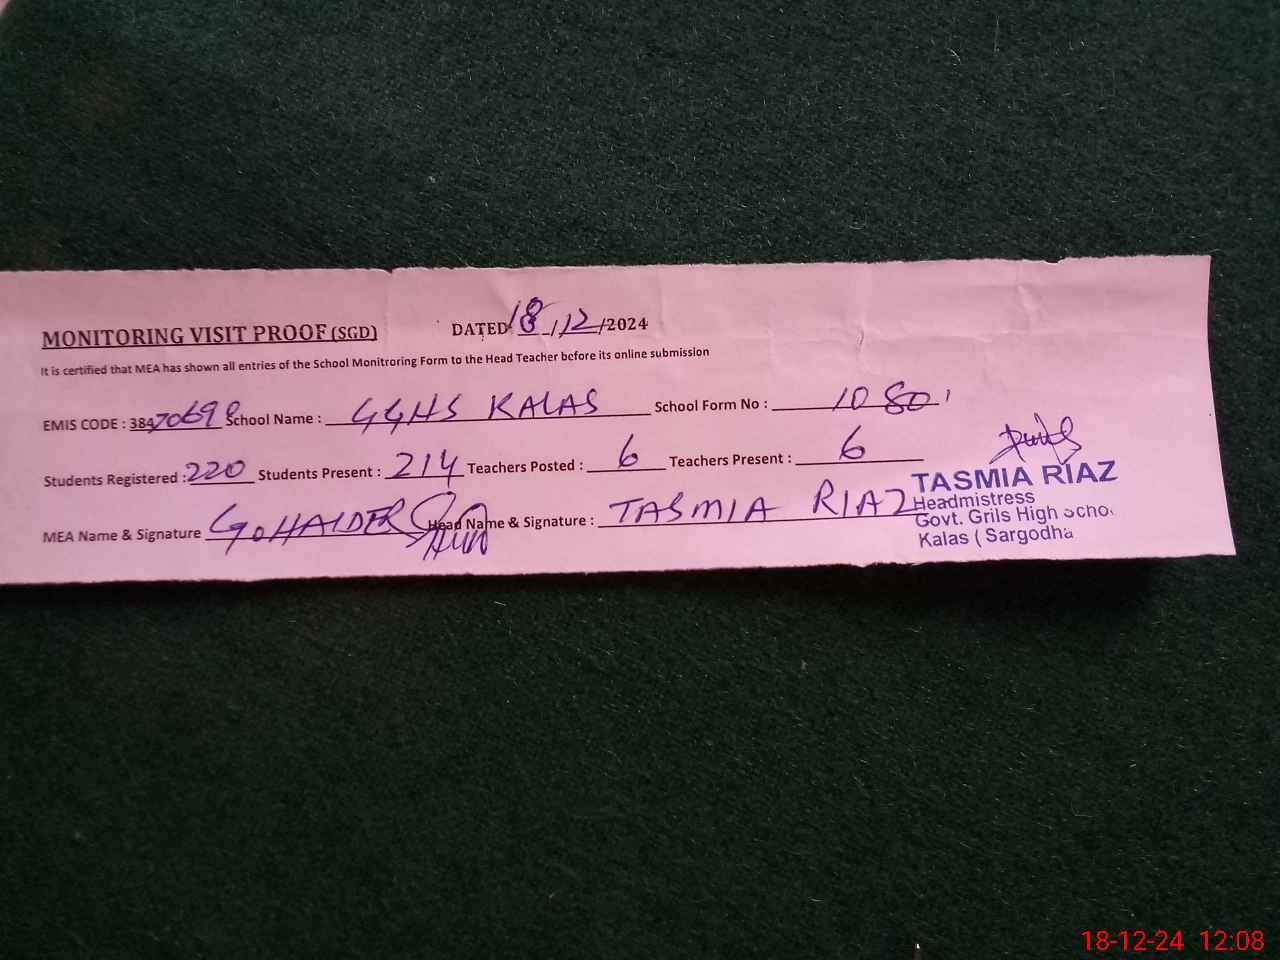 MONITORING VISIT PROOF (SGD) DATED 18/12/2024
It is certified that MEA has shown all entries of the School Monitroring Form to the Head Teacher before its online submission
EMIS CODE : 38470698 School Name : GGHS KALAS School Form No : 1080
Students Registered : 220 Students Present : 214 Teachers Posted : 6 Teachers Present : 6
MEA Name & Signature G.HAIDER Head Name & Signature : TASMIA RIAZ
TASMIA RIAZ
Headmistress
Govt. Grils High Schoo
Kalas ( Sargodha
18-12-24 12:08